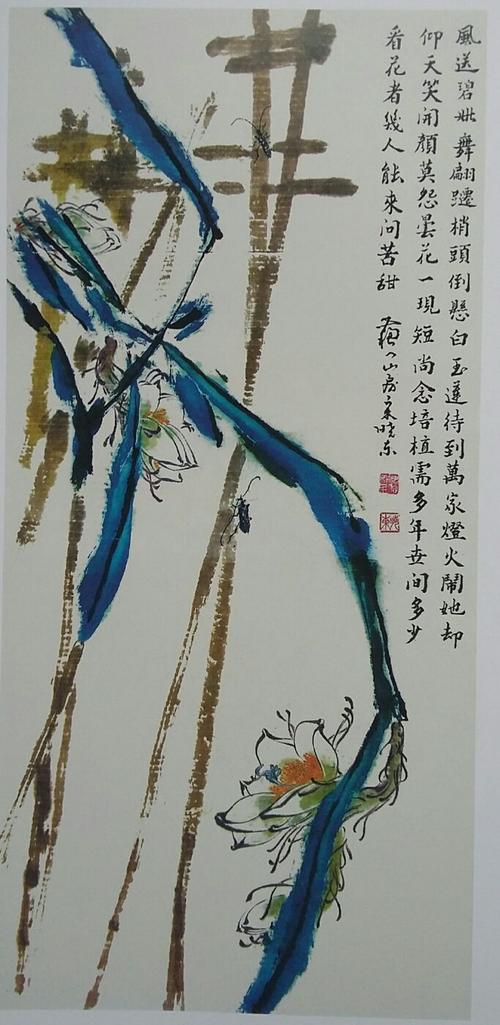 風送碧姝舞翩躚梢頭倒懸白玉蓮待到萬家燈火鬧她却
仰天笑開顏莫怨曇花一現短尚念培植需多年世间多少
看花者幾人能來问苦甜
山房 晓东